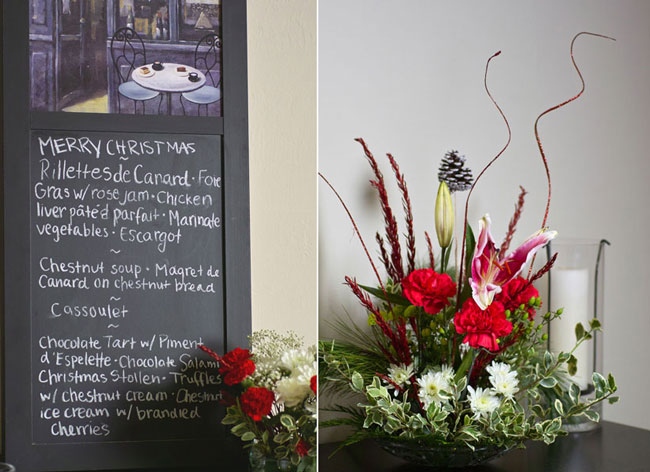 MERRY CHRISTMAS
~
Rillettes de Canard · Foie
Gras w/ rose jam · Chicken
liver pâté d parfait · Marinate
vegetables · Escargot
~
Chestnut soup · Magret de
Canard on chestnut bread
~
Cassoulet
~
Chocolate Tart w/ Piment
d'Espelette · Chocolate Salami
Christmas Stollen · Truffles
w/ chestnut cream · Chestnut
ice cream w/ brandied
Cherries